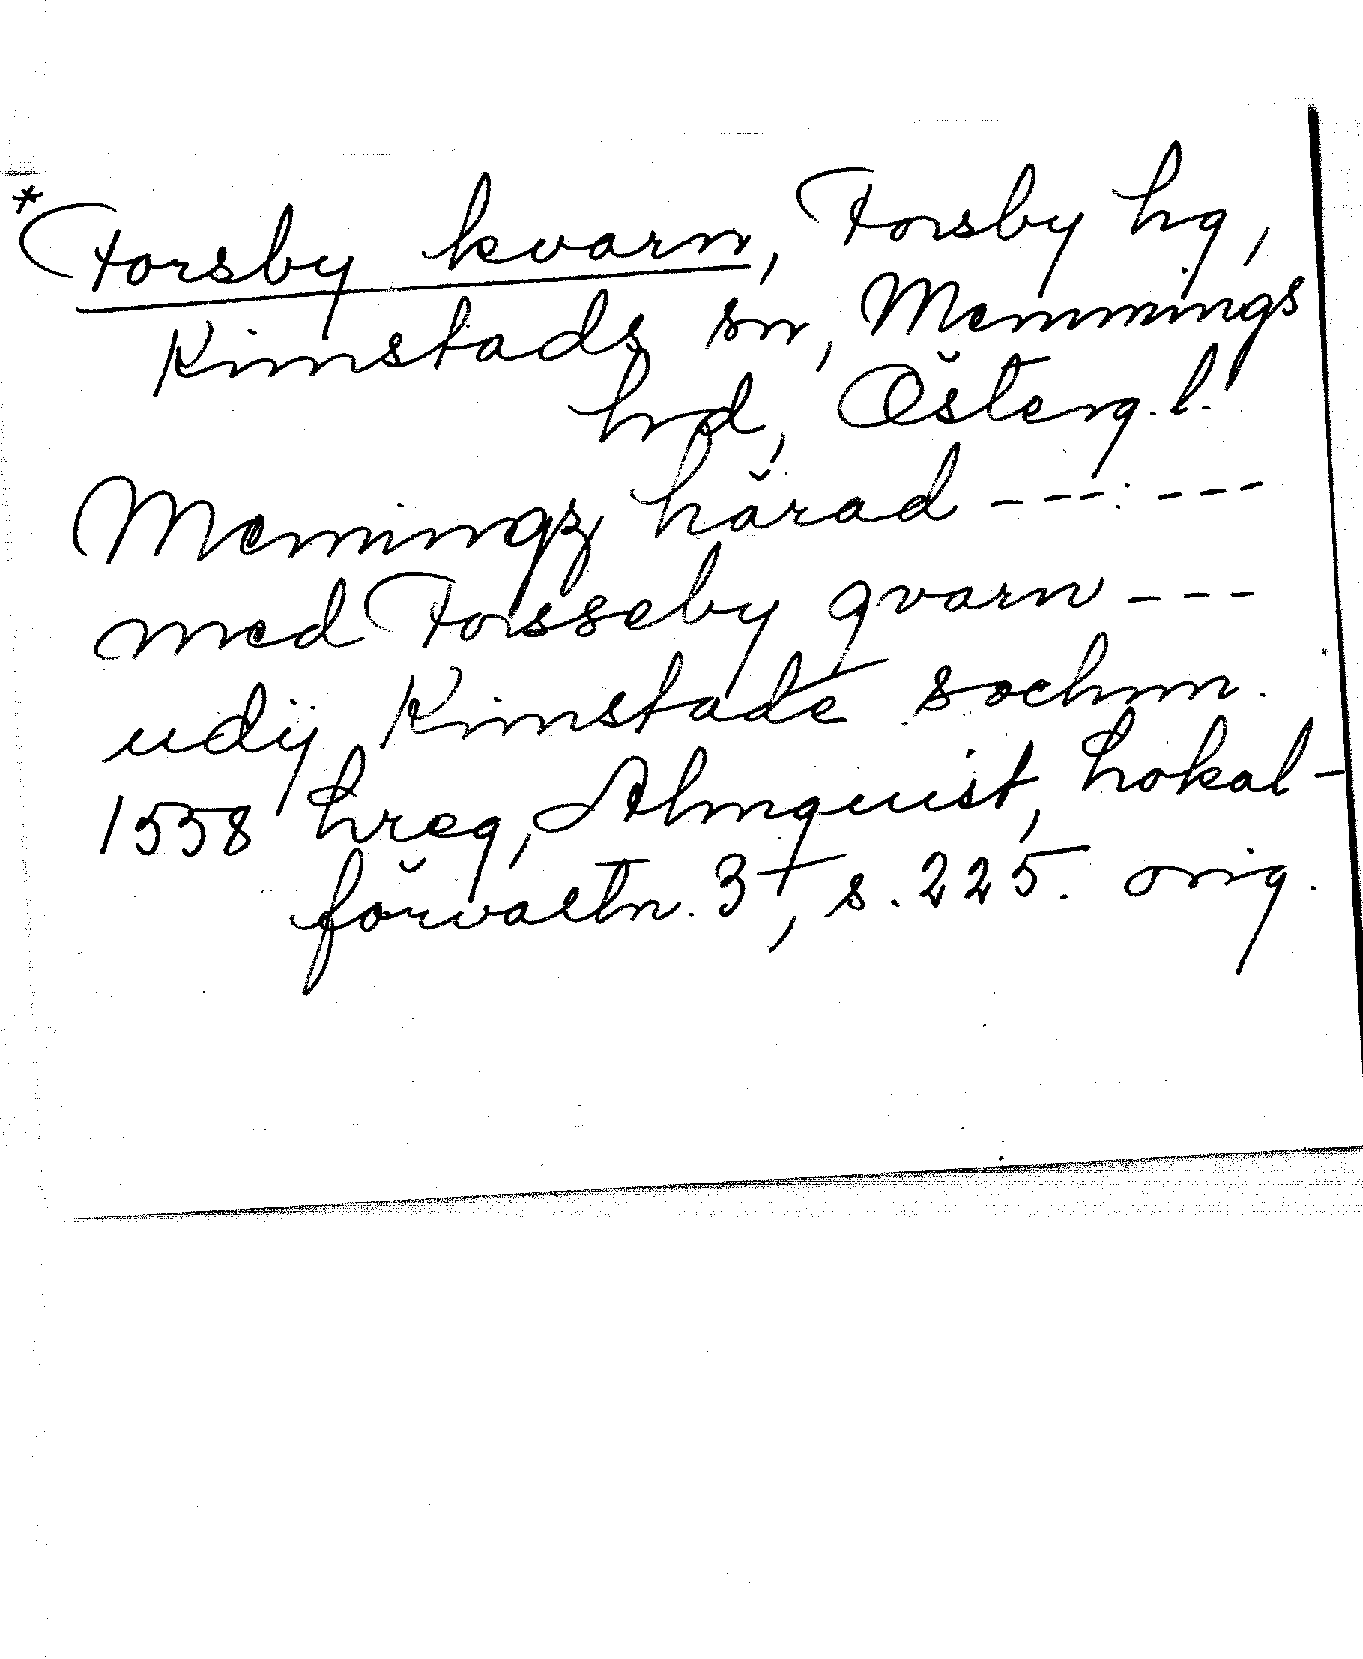 *Forsby kvarn, Forsby hg,
Kimstads sn, Memmings
hd, Österg.l.
Memingz härad --- ---
med Forsseby qvarn ---
udij Kimstade sochnn.
1558 hreg, Almquist, Lokal-
förvaltn. 3, s. 225. orig.